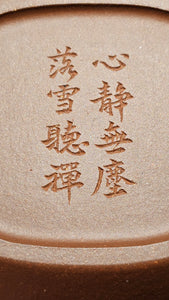 心靜無塵
落雪聽禪